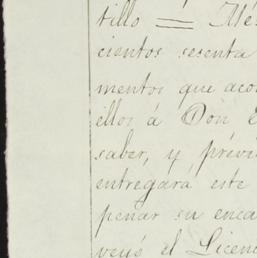 tillo = Méx
cientos sesenta
mentos que aco
ellos á Don
saber, y prévi
entregará este
penar su enca
veyó el Licen